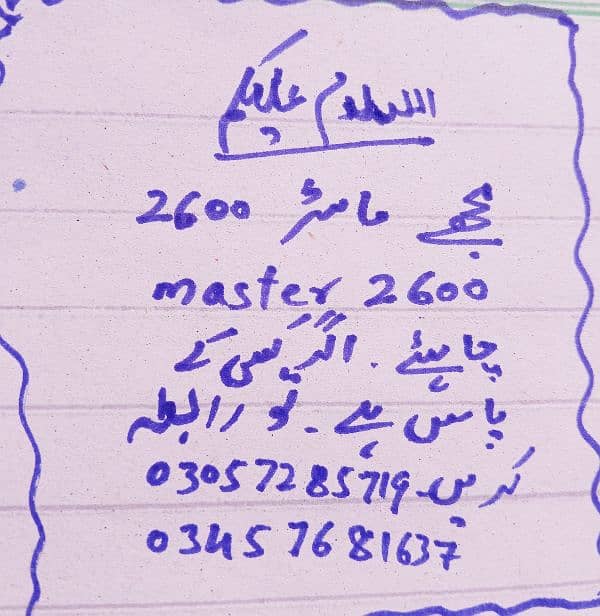 السلام علیکم
مجھے ماسٹر 2600
master 2600
چاہیئے . اگر کسی کے
پاس ہے ۔ تو رابطہ
کریں 03057285719
03457681637